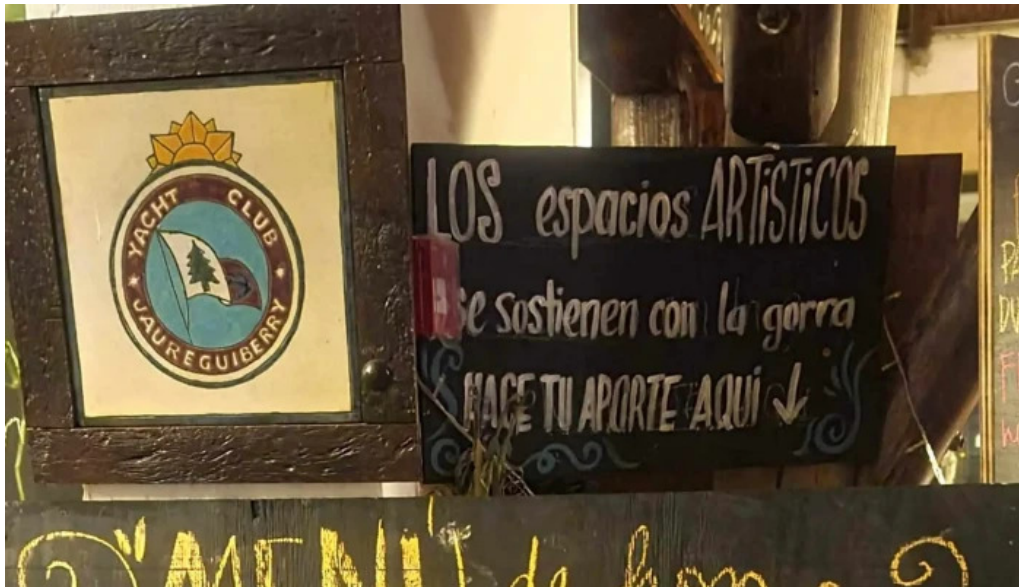 YACHT CLUB
JAUREGUIBERRY
LOS espacios ARTiSTiCOS
se sostienen con la gorra
HACE TU APORTE AQUI ↓
"MENÚ de